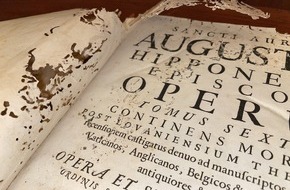 SANCTI AUR
AUGUST
HIPPONE
EPISCO
OPER
TOMUS SEXT
CONTINENS MOR
POST LOVANIENSIUM THE
recensionem castigatus denuo ad manuscriptos
Vaticanos, Anglicanos, Belgicos &
antiquiores &
OPERA ET
ORDINIS